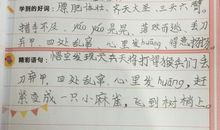 学到的好词：原形毕露、齐天大圣、三头六臂、
措手不及、yáo yáo 晃晃、落荒而逃、丢刀
弃甲、四处乱窜、心里发huāng、得意扬扬
精彩语句：悟空发现天兵天将打得猴兵们丢
刀弃甲、四处乱窜，心里发huāng，赶
紧变成一只小麻雀，飞到树梢上